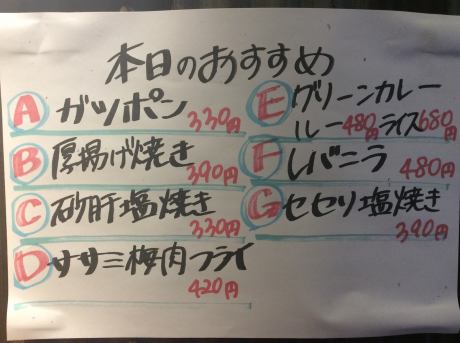 本日のおすすめ
A ガツポン 330円
B 厚揚げ焼き 390円
C 砂肝塩焼き 330円
D ササミ梅肉フライ 420円
E グリーンカレー
ルー480円 ライス680円
F レバニラ 480円
G セセリ塩焼き 390円